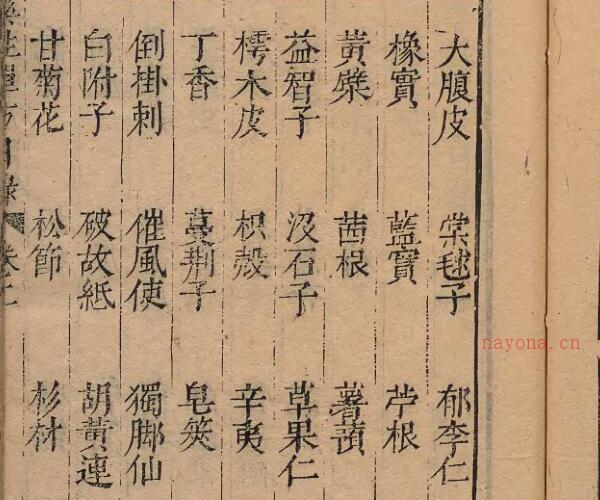 大腹皮 棠毬子 郁李仁
橡實 藍實 苧根
黃檗 茜根 薯蕷
益智子 沒石子 草果仁
樗木皮 枳殼 辛夷
丁香 蔓荆子 皂莢
倒掛刺 催風使 獨脚仙
白附子 破故紙 胡黃連
甘菊花 松節 杉材
方目錄 卷上
nayona.cn